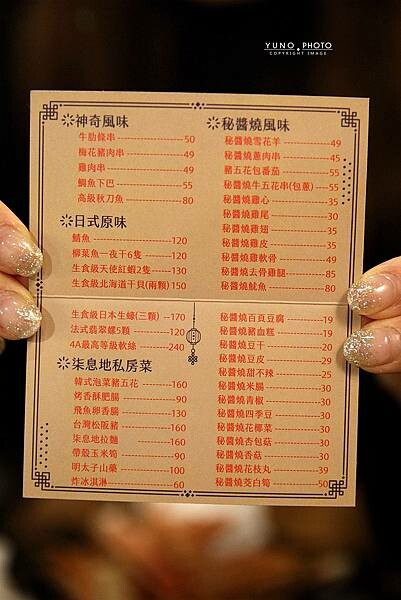 YUNO PHOTO
COPYRIGHT IMAGE
神奇風味
牛肋條串 50
梅花豬肉串 49
雞肉串 49
鯛魚下巴 55
高級秋刀魚 80
日式原味
鯖魚 120
柳葉魚一夜干6隻 120
生食級天使紅蝦2隻 130
生食級北海道干貝(兩顆) 150
生食級日本生蠔(三顆) 170
法式翡翠螺5顆 120
4A最高等級軟絲 240
柒息地私房菜
韓式泡菜豬五花 160
烤香酥肥腸 90
飛魚卵香腸 130
台灣松阪豬 160
柒息地拉麵 160
帶殼玉米筍 90
明太子山藥 100
炸冰淇淋 60
秘醬燒風味
秘醬燒雪花羊 49
秘醬燒蔥肉串 45
豬五花包番茄 55
秘醬燒牛五花串(包蔥) 55
秘醬燒雞心 35
秘醬燒雞尾 30
秘醬燒雞翅 35
秘醬燒雞皮 35
秘醬燒雞軟骨 49
秘醬燒去骨雞腿 85
秘醬燒魷魚 80
秘醬燒百頁豆腐 19
秘醬燒豬血糕 19
秘醬燒豆干 20
秘醬燒豆皮 29
秘醬燒甜不辣 25
秘醬燒米腸 30
秘醬燒青椒 30
秘醬燒四季豆 30
秘醬燒花椰菜 30
秘醬燒杏包菇 30
秘醬燒香菇 30
秘醬燒花枝丸 39
秘醬燒茭白筍 50